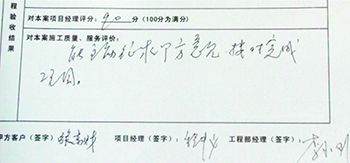 程验收结果
对本案项目经理评分： 90 分（100分为满分）
对本案施工质量、服务评价：
能主动征求甲方意见，按时完成
工图。
甲方客户（签字） 项目经理（签字）： 工程部经理（签字）：